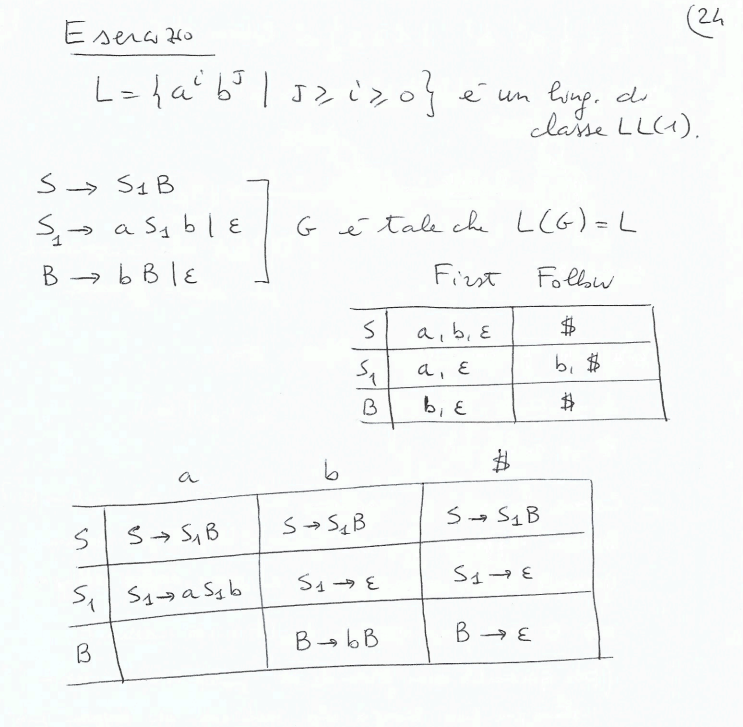 (24
Esercizio
L = { a^i b^J | J ≥ i ≥ 0 } è un ling. di
classe LL(1).
S → S₁B
S₁ → a S₁ b | ε G è tale che L(G) = L
B → bB | ε
First Follow
S a, b, ε $
S₁ a, ε b, $
B b, ε $
a b $
S S → S₁B S → S₁B S → S₁B
S₁ S₁ → a S₁ b S₁ → ε S₁ → ε
B B → bB B → ε